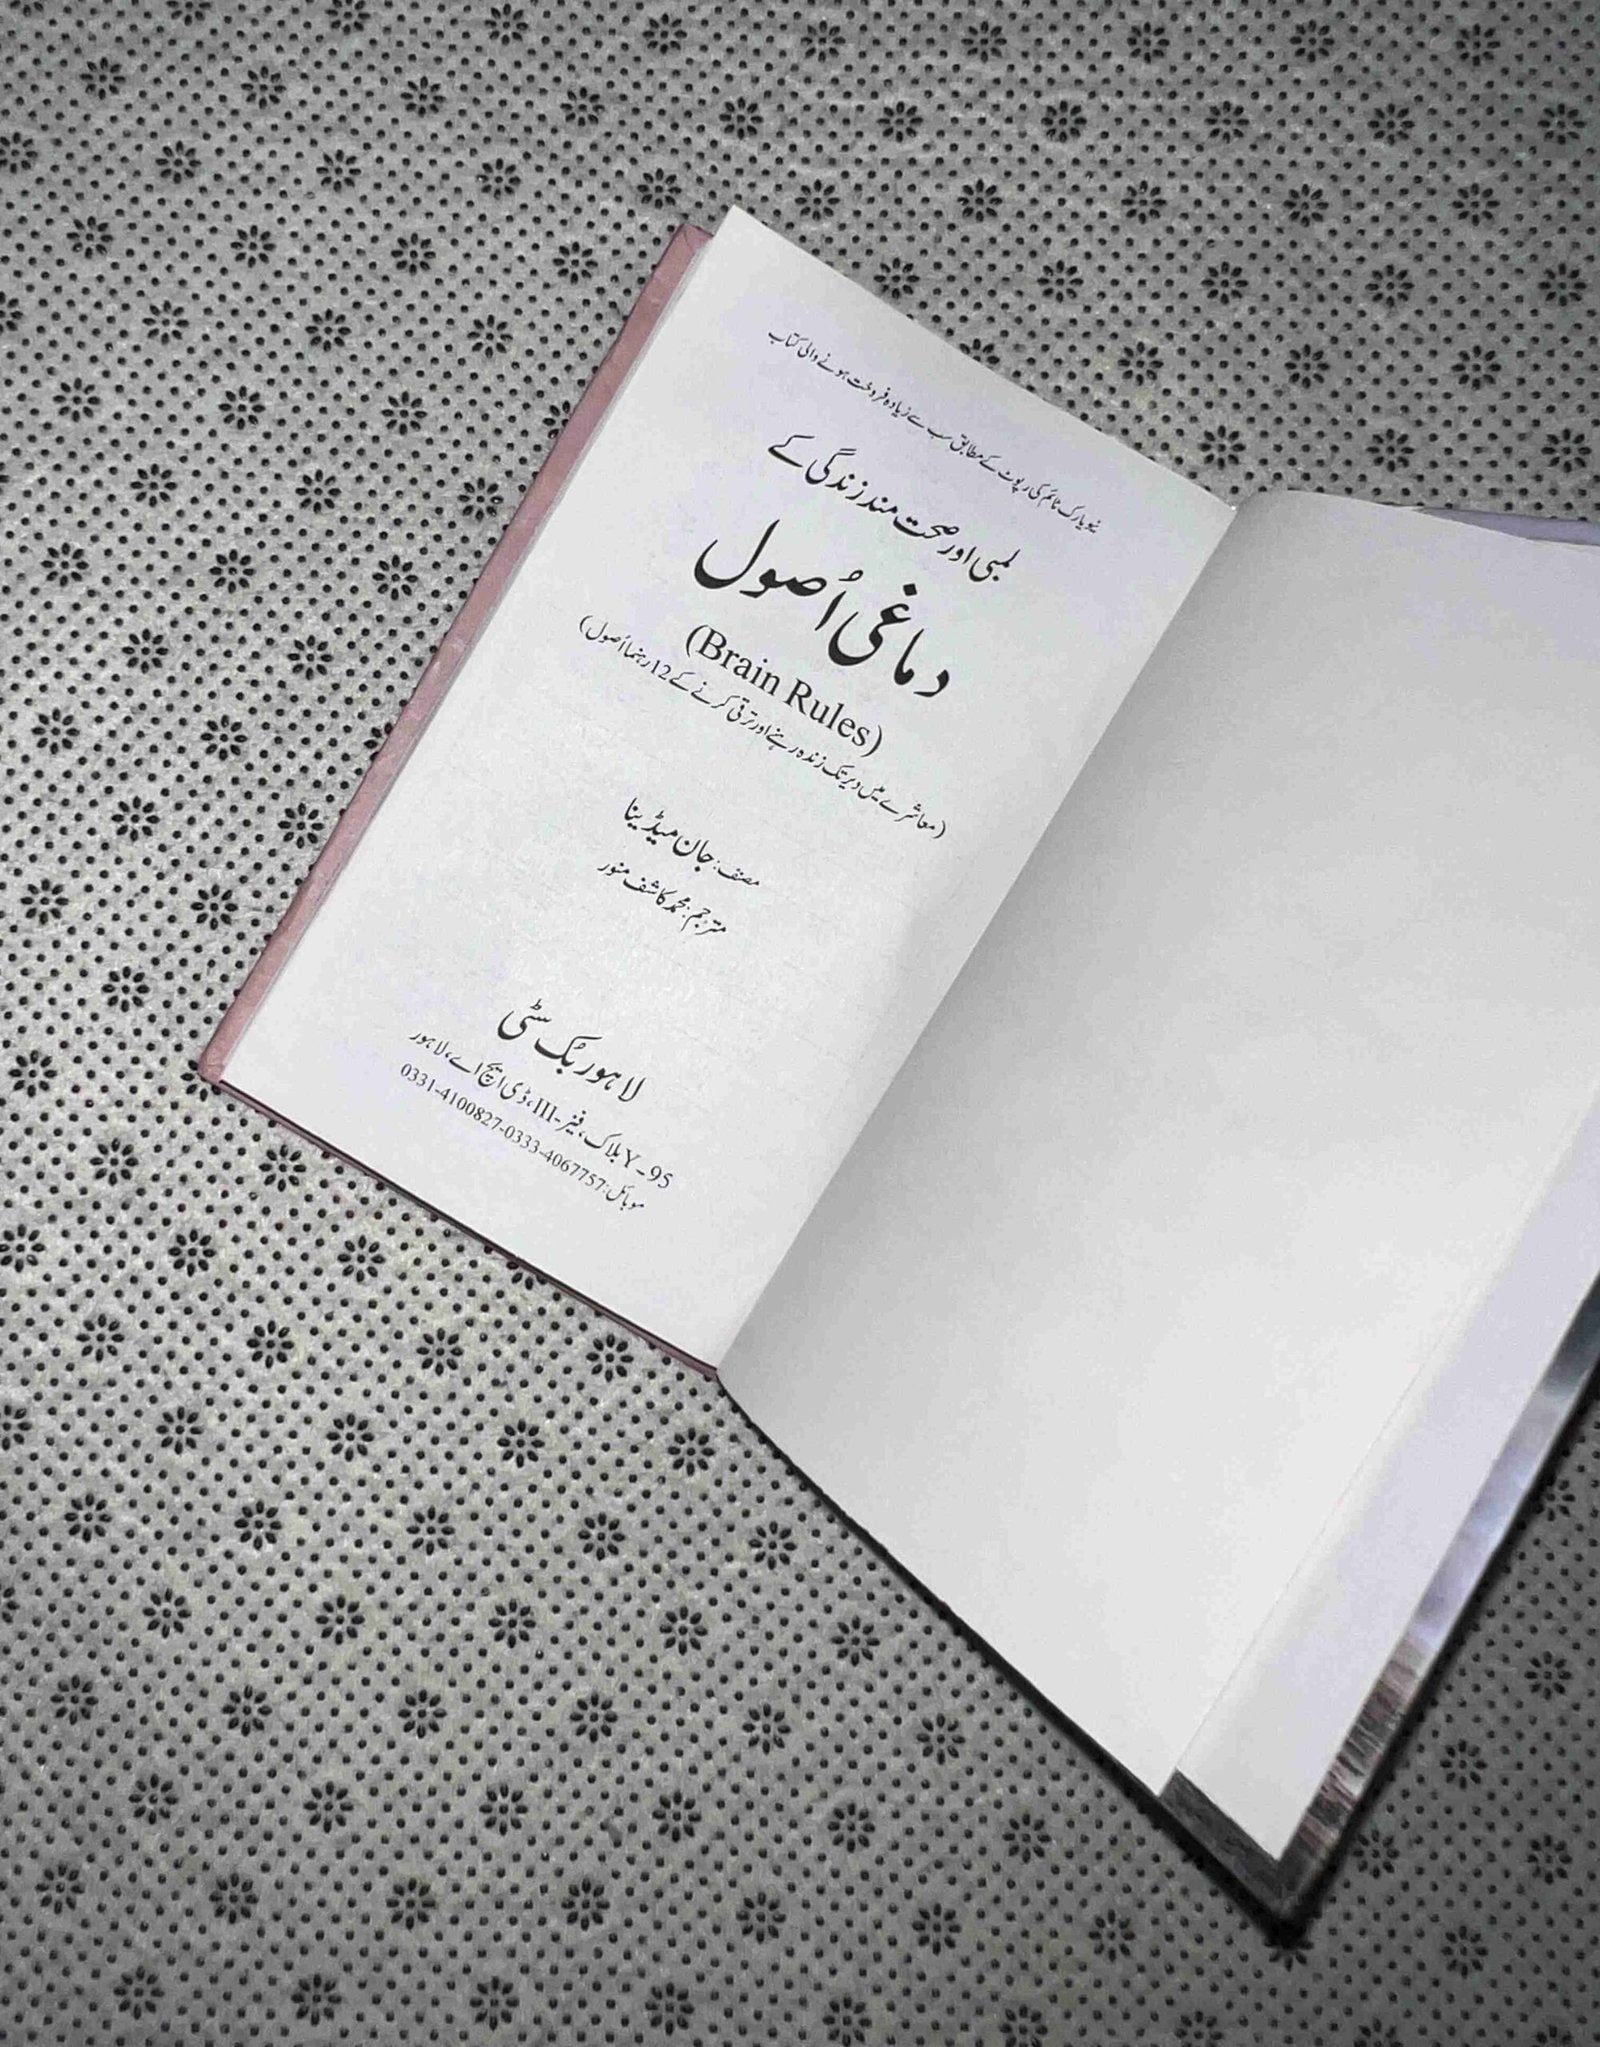 نیویارک ٹائم کی رپوٹ کے مطابق سب سے زیادہ فروخت ہونے والی کتاب
لمبی اور صحت مند زندگی کے
دماغی اُصول
(Brain Rules)
(معاشرے میں دیر تک زندہ رہنے اور ترقی کرنے کے 12 رہنما اُصول)
مصنف: جان میڈینا
مترجم: محمد کاشف منور
لاہور بُک سٹی
95-Y بلاک، فیز-III، ڈی ایچ اے، لاہور
موبائل: 0331-4100827-0333-4067757